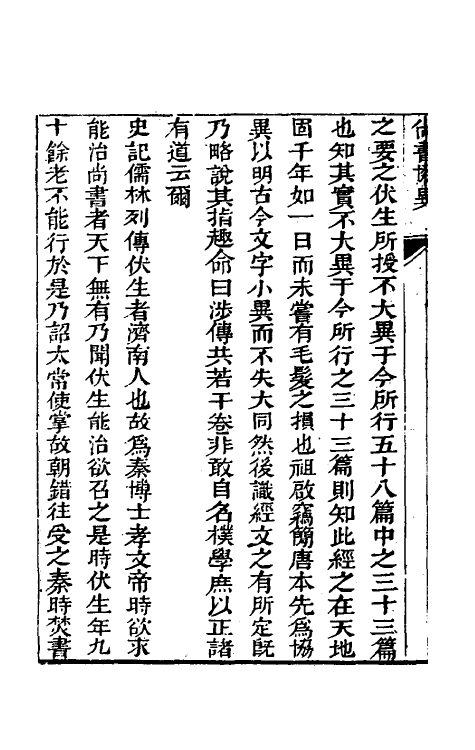 尚書協異
之要之伏生所授不大異于今所行五十八篇中之三十三篇
也知其實不大異于今所行之三十三篇則知此經之在天地
固千年如一日而未嘗有毛髮之損也祖啟竊簡唐本先為協
異以明古今文字小異而不失大同然後識經文之有所定旣
乃略說其指趣命曰涉傳共若干卷非敢自名樸學庶以正諸
有道云爾
史記儒林列傳伏生者濟南人也故爲秦博士孝文帝時欲求
能治尚書者天下無有乃聞伏生能治欲召之是時伏生年九
十餘老不能行於是乃詔太常使掌故朝錯往受之秦時焚書